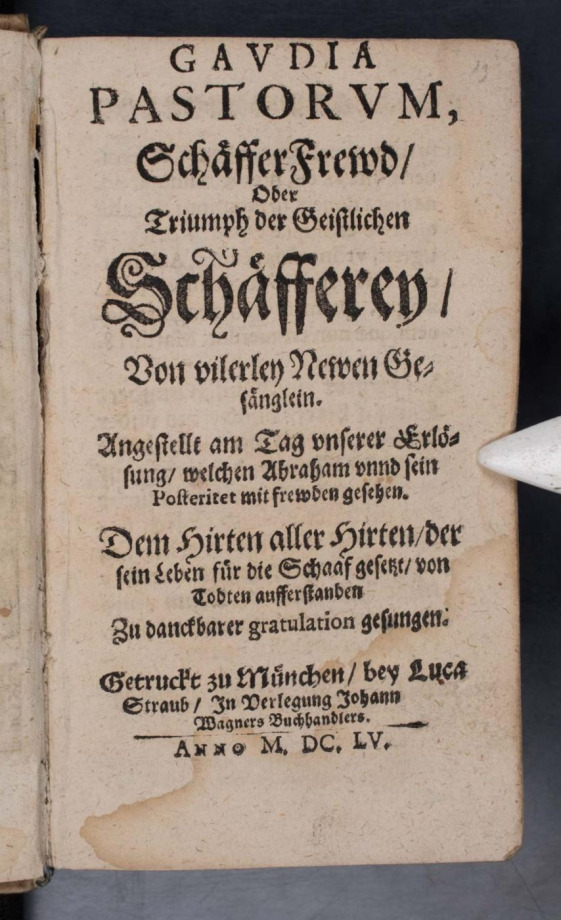 19
GAVDIA
PASTORVM,
SchäfferFrewd/
Oder
Triumph der Geistlichen
Schäfferey /
Von vilerley Newen Ge-
sänglein.
Angestellt am Tag vnserer Erlö-
sung/ welchen Abraham vnnd sein
Posteritet mit frewden gesehen.
Dem Hirten aller Hirten/der
sein Leben für die Schaaf gesetzt/ von
Todten aufferstanden
Zu danckbarer gratulation gesungen.
Getruckt zu München/ bey Luca
Straub/ In Verlegung Johann
Wagners Buchhandlers.
ANNO M. DC. LV.